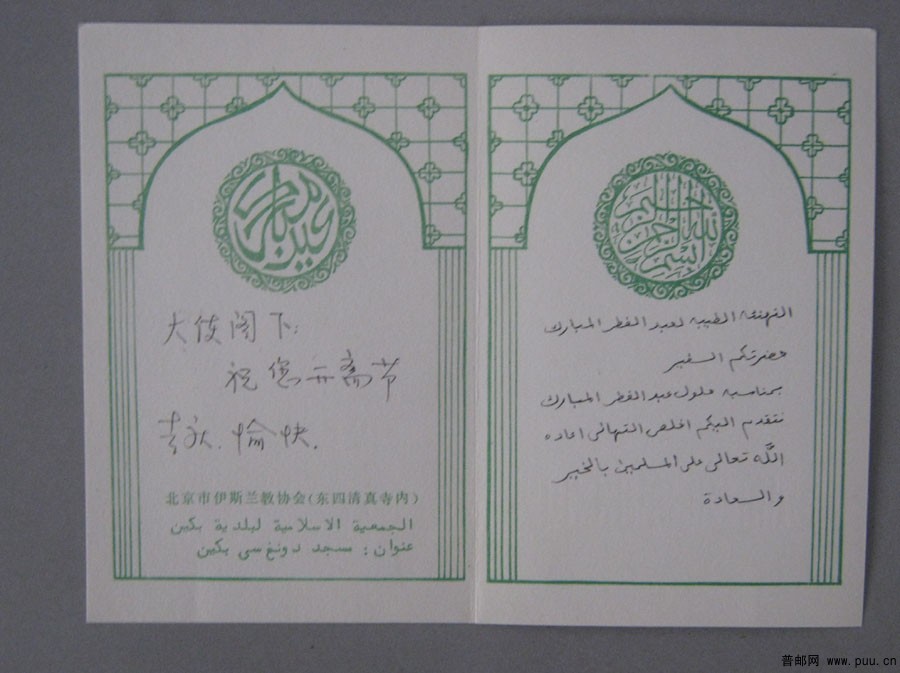 عيد مبارك
大使阁下:
祝您开斋节
幸福.愉快.
北京市伊斯兰教协会(东四清真寺内)
الجمعية الاسلامية لبلدية بكين
عنوان: مسجد دونغ سي بكين
بسم الله الرحمن الرحيم
التهنئة الطيبة لعيد الفطر المبارك
حضرتكم السفير
بمناسبة حلول عيد الفطر المبارك
نتقدم اليكم اخلص التهاني اعاده
الله تعالى على المسلمين بالخير
و السعادة
普邮网 www.puu.cn